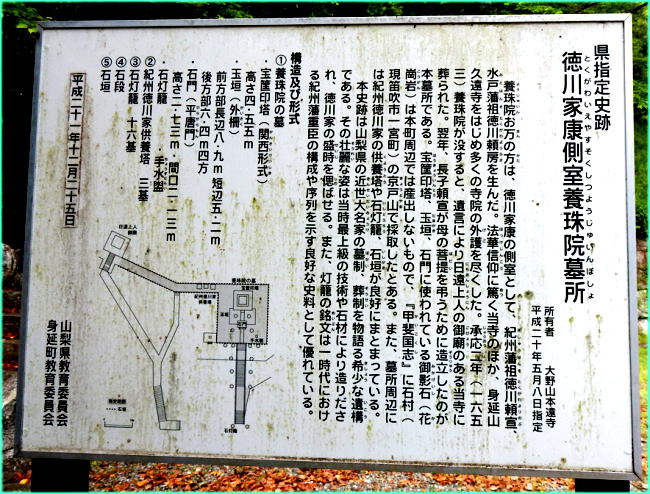 県指定史跡
徳川家康側室養珠院墓所
とくがわいえやすそくしつようじゅいんぼしょ
所有者 大野山本遠寺
平成二十年五月八日指定
養珠院お万の方は、徳川家康の側室として、紀州藩祖徳川頼宣、
水戸藩祖徳川頼房を生んだ。法華信仰に篤く当寺のほか、身延山
久遠寺をはじめ多くの寺院の外護を尽くした。承応二年(一六五
三)養珠院が没すると、遺言により日遠上人の御廟のある当寺に
葬られた。翌年、長子頼宣が母の菩提を弔うために造立したのが
本墓所である。宝篋印塔、玉垣、石門に使われている御影石(花
崗岩)は本町周辺では産出しないもので、『甲斐国志』に石村(
現笛吹市一宮町)の京戸山で採取したとある。また、墓所周辺に
は紀州徳川家の供養塔や石灯籠、石垣が良好にまとまっている。
本史跡は山梨県の近世大名家の墓制、葬制を物語る希少な遺構
である。その壮麗な姿は当時最上級の技術や石材により造りださ
れ、徳川家の盛時を偲ばせる。また、灯籠の銘文は一時代におけ
る紀州藩重臣の構成や序列を示す良好な史料として優れている。
構造及び形式
①養珠院の墓
・宝篋印塔(関西形式)
高さ四・五五m
・玉垣(外柵)
前方部長辺八・九m 短辺五・二m
後方部六・四m四方
・石門(平唐門)
高さ二・七三m・間口一・一三m
・石灯籠 ・手水盥
②紀州徳川家供養塔 三基
③石灯籠 十六基
④石段
⑤石垣
平成二十一年十二月二十五日
山梨県教育委員会
身延町教育委員会
日遠上人
御廟
養珠院の墓
宝篋印塔
紀州徳川家
供養塔
玉垣
石門
手水盥
石灯籠
指定範囲
石垣